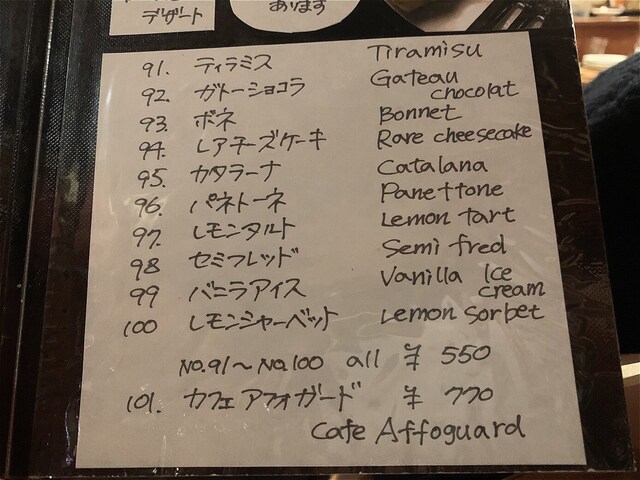 デザート
あります
91. ティラミス Tiramisu
92. ガトーショコラ Gateau chocolat
93. ボネ Bonnet
94. レアチーズケーキ Rare cheesecake
95. カタラーナ Catalana
96. パネトーネ Panettone
97. レモンタルト Lemon tart
98 セミフレッド Semi fred
99 バニラアイス Vanilla Ice cream
100 レモンシャーベット Lemon Sorbet
No.91～No.100 all ¥ 550
101. カフェアフォガード ¥ 770
Cafe Affoguard